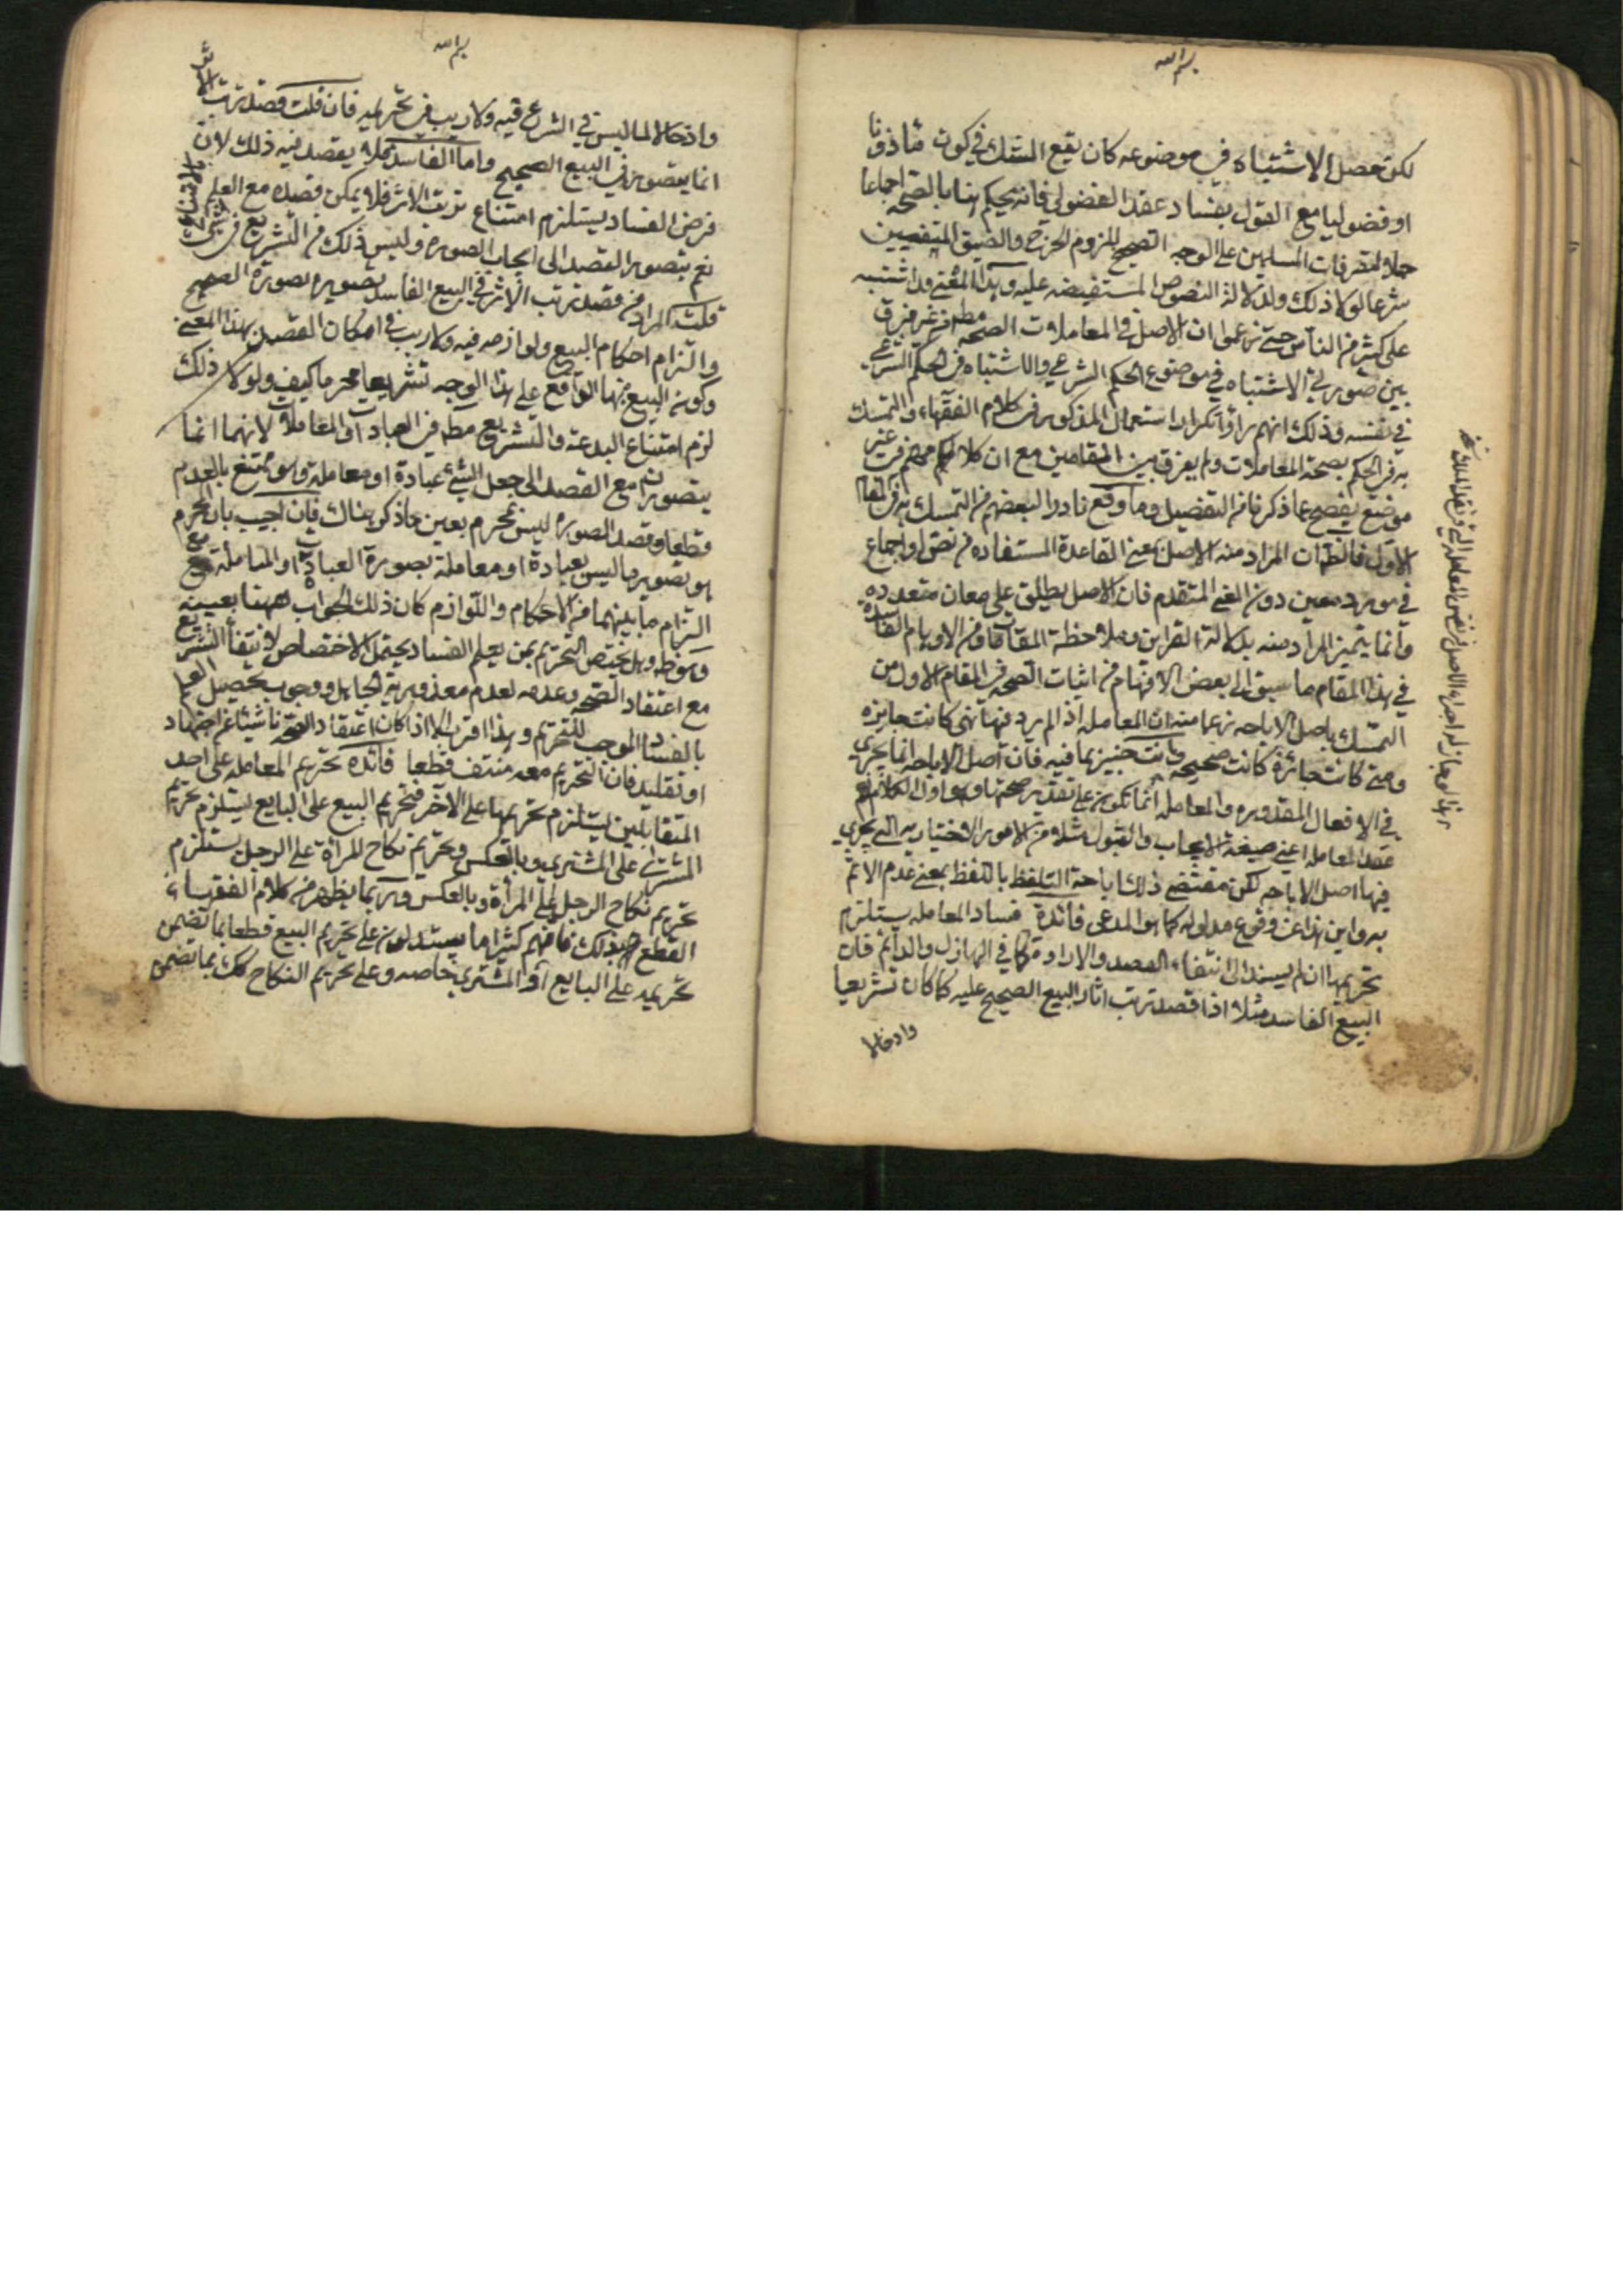 بسم الله
لكن حصل الاشتباه في موضوعه كان يقع الشك في كون ماذونا
او فضوليا مع القول بفساد عقد الفضولي فانه يحكم هنا بالصحه اجماعا
حملا لتصرفات المسلمين على الوجه الصحيح للزوم الحرج والضيق المنفيين
شرعا لولا ذلك ولدلالة النصوص المستفيضه عليه وبهذا المعنى وان اشتبه
على كثير من الناس حتى زعموا ان الاصل في المعاملات الصحه مطم من غير فرق
بين صورتي الاشتباه في موضوع الحكم الشرعي والاشتباه في الحكم الشرعي
في نفسه وذلك انهم راوا تكرار استعمال المذكور في كلام الفقهاء والتمسك
به في الحكم بصحة المعاملات ولم يفرق بين المقامين مع ان كلامهم في غير
موضع يفصح عما ذكرنا من التفصيل وما وقع نادرا لبعضهم من التمسك به في المقام
الاول فالظ ان المراد منه الاصل بمعنى القاعدة المستفاده من نص او اجماع
في مورد معين دون المعنى المتقدم فان الاصل يطلق على معان متعدده
وانما يتميز المراد منه بدلالة القراين وملاحظة المقامات ومن الاوهام الفاسدة
في هذا المقام ما سبق الى بعض الافهام من اثبات الصحه في المقام الاول من
التمسك باصل الاباحه زعما منه ان المعامله اذا لم يرد فيها نهي كانت جايزه
ومتى كانت جائزة كانت صحيحه وانت خبير بما فيه فان اصل الاباحه انما يجري
في الافعال المقدوره والمعامله انما تكون على تقدير صحتها وهو اول الكلام نعم
عقد المعامله اعني صيغة الايجاب والقبول مثلا من الامور الاختياريه التي يجري
فيها اصل الاباحه لكن مقتضى ذلك اباحة التلفظ باللفظ بمعنى عدم الاثم
به واين هذا عن وقوع مدلوله كما هو المدعى فائدة فساد المعامله يستلزم
تحريمها ان لم يستند الى انتفاء القصد والاراده كما في الهازل والنائم فان
البيع الفاسد مثلا اذا قصد ترتب اثار البيع الصحيح عليه كا كان تشريعا
وادخالا
بسم الله
وادخالا لما ليس في الشرع فيه ولا ريب في تحريمه فان قلت قصد ترتب الاثر
انما يتصور في البيع الصحيح واما الفاسد فلا يقصد فيه ذلك لان
فرض الفساد يستلزم امتناع ترتب الاثر فلا يمكن قصده مع العلم بامتناعه
نعم يتصور القصد الى ايجاب الصوره وليس ذلك من التشريع في شئ
قلت المراد من قصد ترتب الاثر في البيع الفاسد تصويره بصورة الصحيح
والتزام احكام البيع ولوازمه فيه ولا ريب في امكان القصد بهذا المعنى
وكون البيع بها الواقع على هذا الوجه تشريعا محرما كيف ولولا ذلك
لزم امتناع البدعة والتشريع مطم في العبادات والمعاملات لانهما انما
يتصوران مع القصد الى جعل الشئ عبادة او معاملة وهو ممتنع بالعدم
قطعا وقصد الصوره ليس بمحرم بعين ما ذكر هناك فان اجيب بان المحرم
هو تصوير ما ليس بعبادة او معاملة بصورة العبادة او المعاملة مع
التزام ما يلزمهما من الاحكام واللوازم كان ذلك الجواب ههنا بعينه
وهو ظ وهل يختص التحريم بمن يعلم الفساد يحتمل الاختصاص لانتفاء التشريع
مع اعتقاد الصحه وعدمه لعدم معذورية الجاهل ووجوب تحصيل العلم
بالفساد الموجب للتحريم وهذا اقرب الا اذا كان اعتقاد الصحه ناشئا عن اجتهاد
او تقليد فان التحريم معه منتف قطعا فائده تحريم المعامله على احد
المتقابلين يستلزم تحريمها على الآخر فتحريم البيع على البايع يستلزم تحريم
الشراء على المشتري وبالعكس وتحريم نكاح المرأة على الرجل يستلزم
تحريم نكاح الرجل على المرأة وبالعكس وربما يظهر من كلام الفقهاء
القطع بذلك فانهم كثيرا ما يستدلون على تحريم البيع قطعا بما تضمن
تحريمه على البايع او المشتري خاصه وعلى تحريم النكاح كك بما تضمن